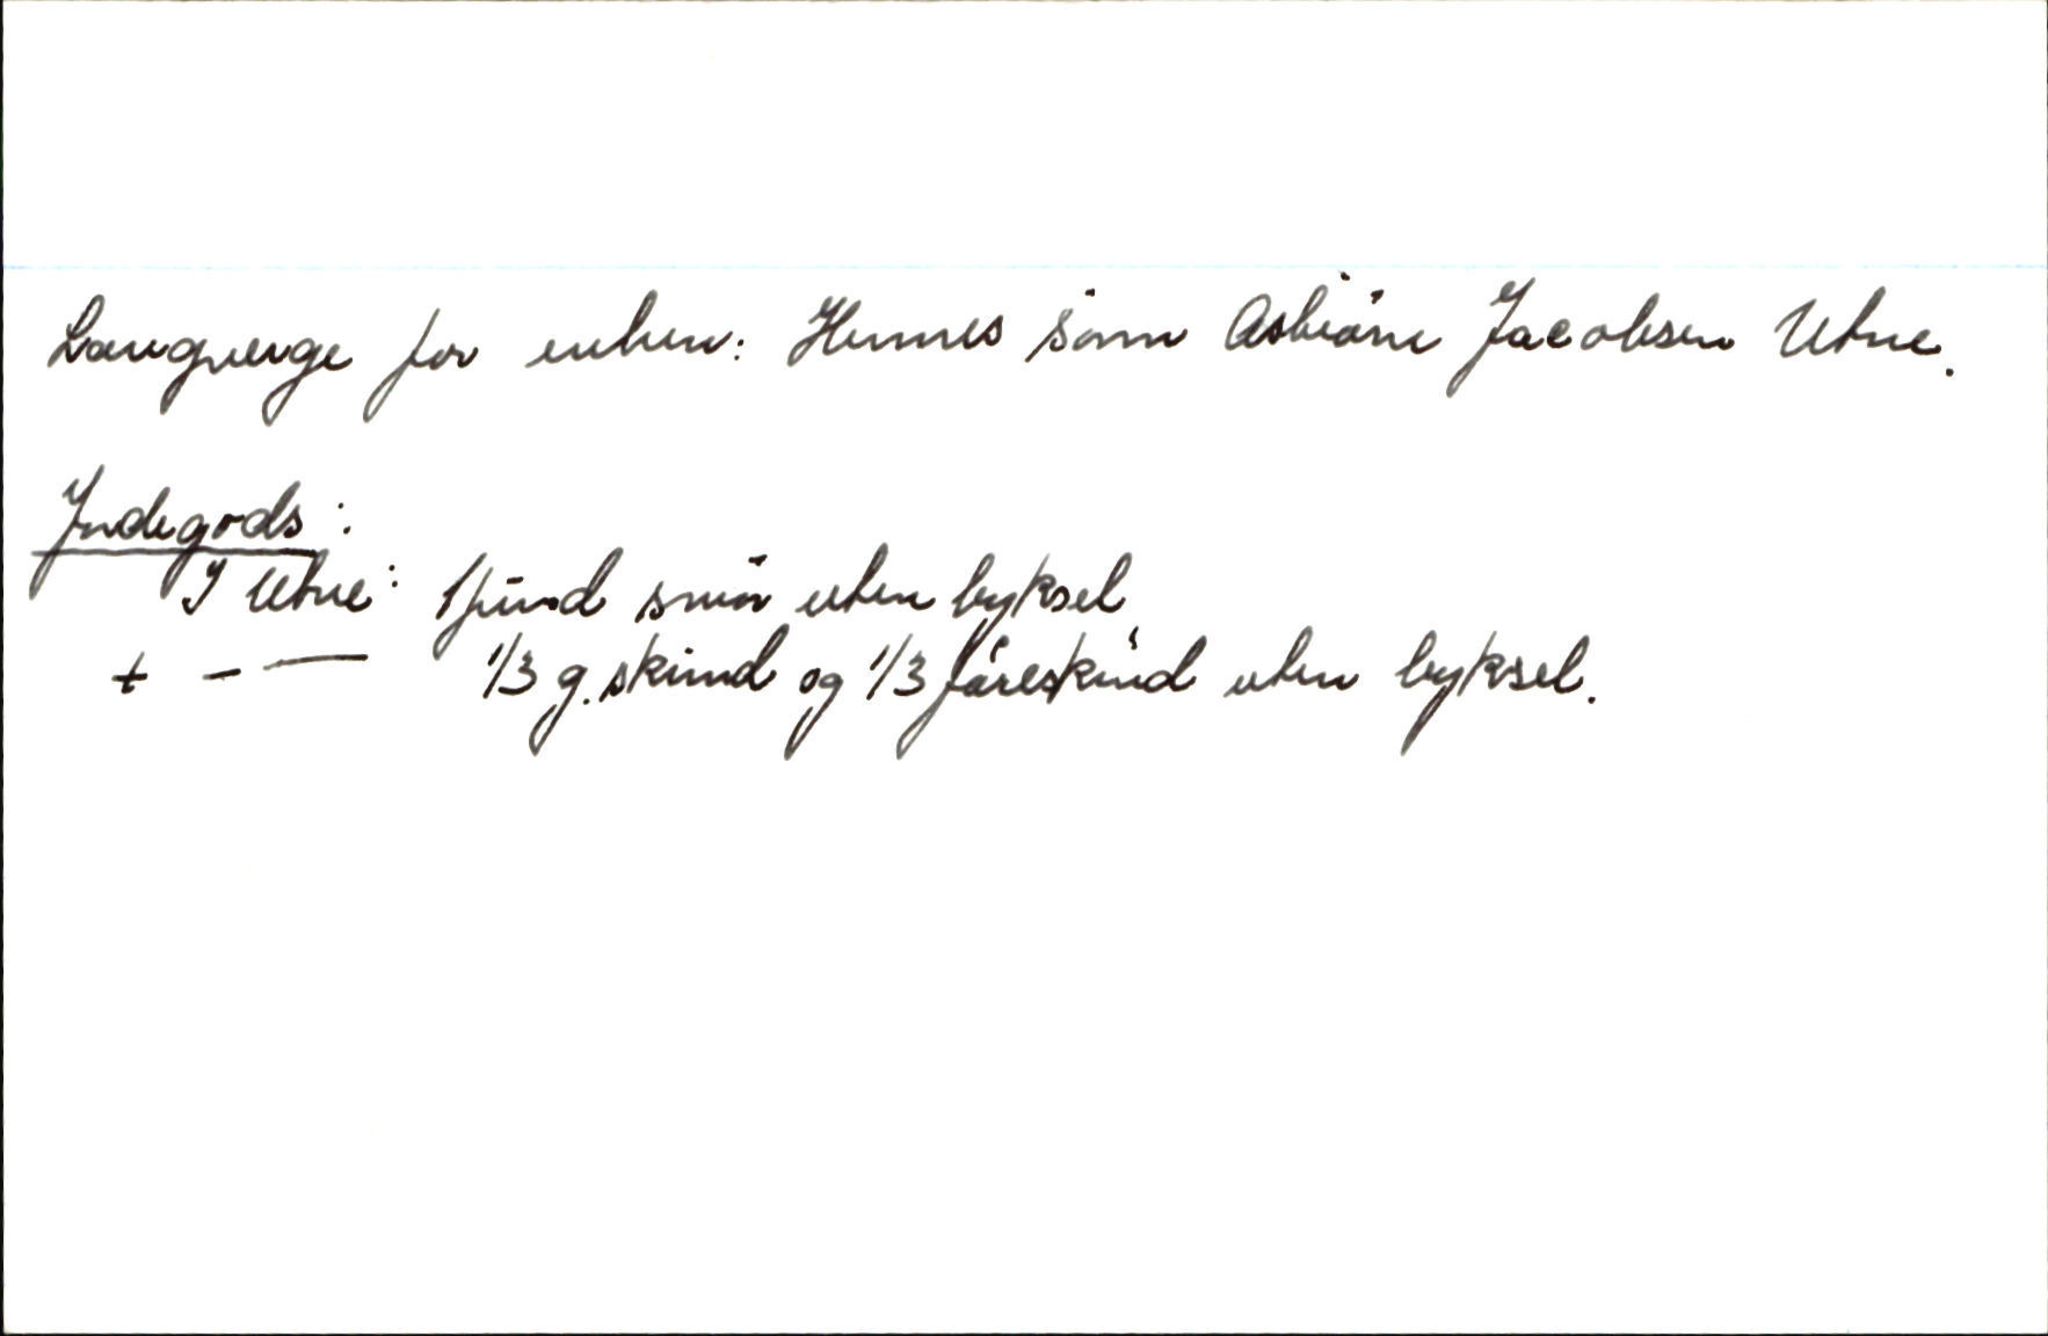 Laugverge for enken: Hennes sönn Asbiörn Jacobsen Utne.
Jndegods:
J Utne: 1 pund smör uten byksel
+ - — 1/3 g. skinnd og 1/3 fåreskind uten byksel.